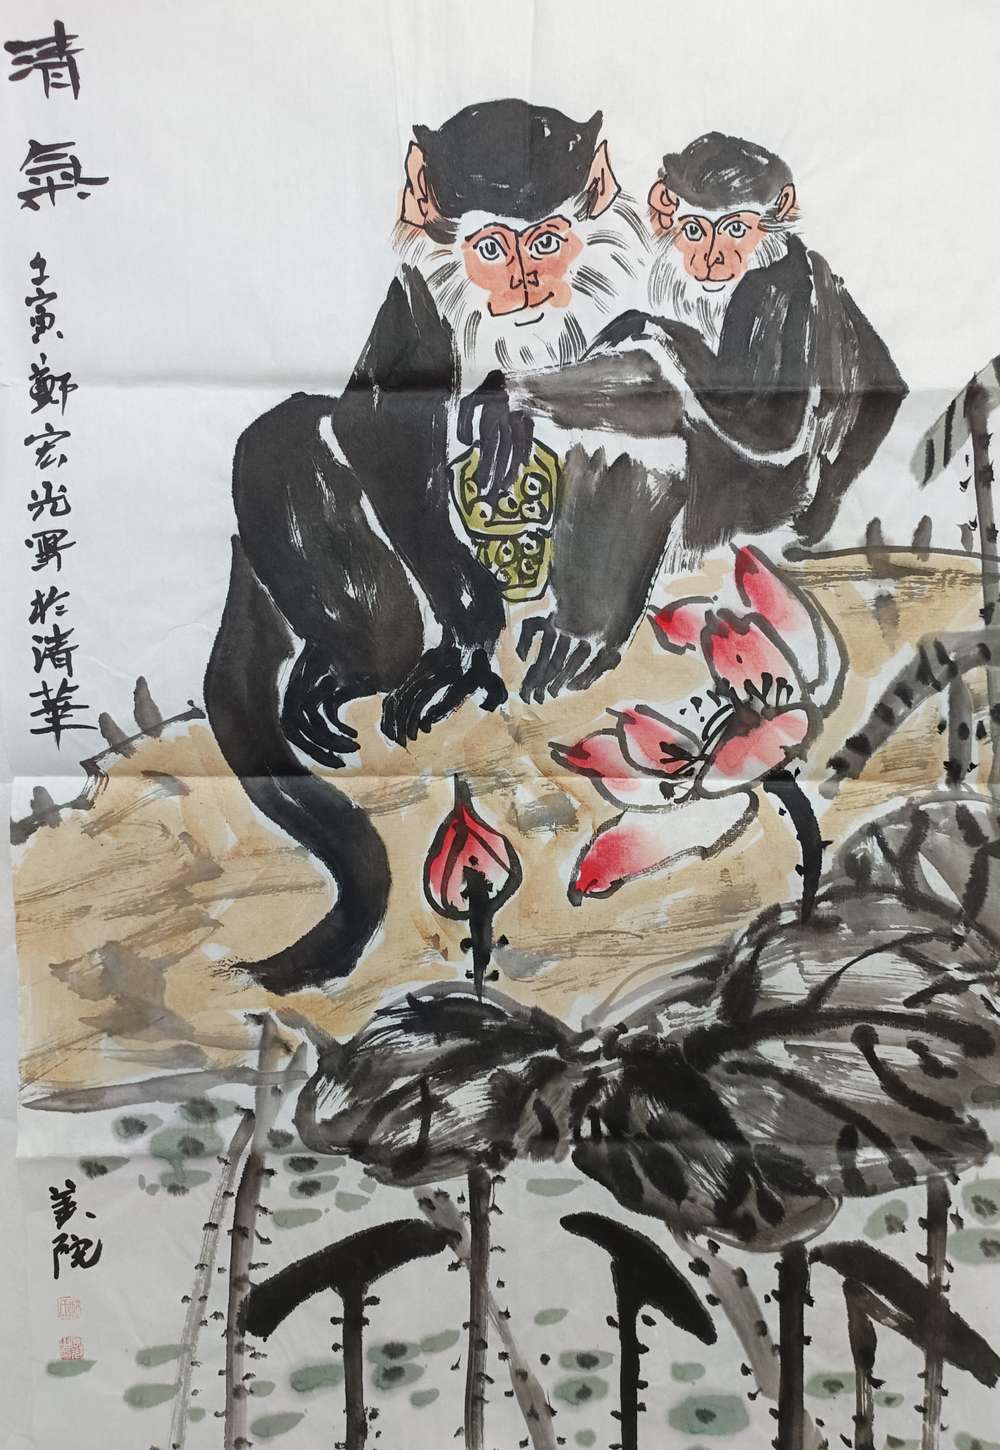 清氣
壬寅鄭宏光寫於清華
美院